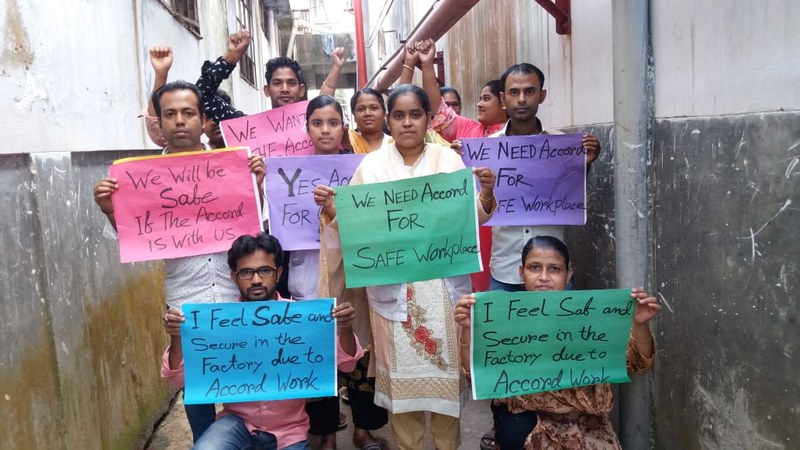 We Want
The Acco
We Will be
Sabe
If The Accord
Is With Us
Yes Acco
For S
We Need Accord
For
Safe Workplace
We Need Accord
For
fe Workplace
I Feel Sabe and
Secure in the
Factory due to
Accord Work.
I Feel Saf and
Secure in the
Factory due to
Accord Work